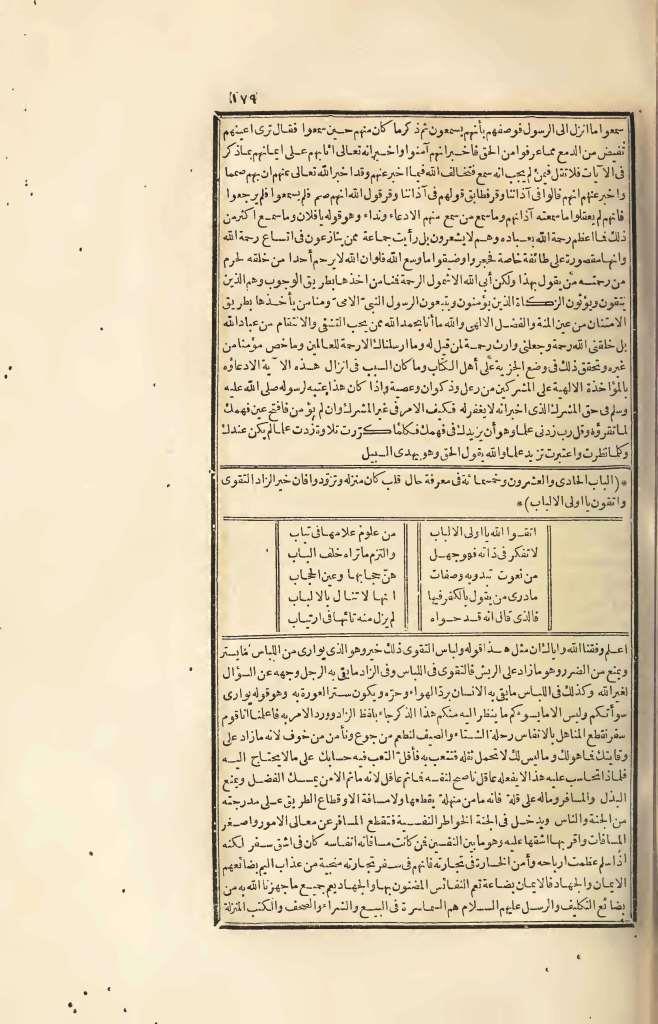 ١٧٩
سمعوا ما انزل الى الرسول فوصفهم بأنهم يسمعون ثم ذكر ما كان منهم حين سمعوا فقال ترى اعينهم
تفيض من الدمع مما عرفوا من الحق فأخبر انهم آمنوا واخبر انه تعالى اثابهم على ايمانهم بما ذكر
فى الآيات فلا تقل فيمن لم يجب انه سمع فتخالف الله فيما اخبر عنهم وقد اخبر الله تعالى عنهم ان بهم صمما
واخبر عنهم انهم قالوا فى آذاننا وقر فطابق قولهم فى آذاننا وقر قول الله انهم صم فلم يسمعوا فلم يرجعوا
فانهم لم يعقلوا ما سمعته آذانهم وما سمع من سمع منهم الا دعاء ونداء وهو قوله يا فلان وما سمع اكثر من
ذلك فما اعظم رحمة الله بعباده وهم لا يشعرون بل رأيت جماعة ممن ينازعون فى اتساع رحمة الله
وانها مقصورة على طائفة خاصة فحجروا وضيقوا ما وسع الله فلو ان الله لا يرحم أحدا من خلقه لحرم
من رحمته من يقول بهذا ولكن أبى الله الا شمول الرحمة فمنا من اخذها بطريق الوجوب وهم الذين
يتقون ويؤتون الزكاة الذين يؤمنون ويتبعون الرسول النبى الامى ومنا من يأخذها بطريق
الامتنان من عين المنة والفضل الالهى والله ما أنا بحمد الله ممن يحب التشفى والانتقام من عباد الله
بل خلقنى الله رحمة وجعلنى وارث رحمة لمن قيل له وما ارسلناك الا رحمة للعالمين وما خص مؤمنا من
غيره وتحقق ذلك فى وضع الجزية على أهل الكتاب وما كان السبب فى انزال هذه الآية الا دعاؤه
بالمؤاخذة الالهية على المشركين من رعل وذكوان وعصية واذا كان هذا عتبه لرسوله صلى الله عليه
وسلم فى حق المشرك الذى اخبر انه لا يغفر له فكيف الامر فى غير المشرك وان لم يؤمن فافتح عين فهمك
لما تقرؤه وقل رب زدنى علما وهو أن يزيدك فى فهمك فكلما كررت تلاوة زدت علما لم يكن عندك
وكلما نظرت واعتبرت تزيد علما والله يقول الحق وهو يهدى السبيل
* (الباب الحادى والعشرون وخمسمائة فى معرفة حال قلب كان منزله وتزودوا فان خير الزاد التقوى
واتقون يا اولى الالباب) *
اتقوا الله يا اولى الالباب من علوم علامها فى تباب
لا تفكر فى ذاته فهو جهل والتزم ما تراه خلف الباب
من نعوت تبدو به وصفات هن حجابها وعين الحجاب
ما درى من يقول بالكفر فيها انها لا تنال بالالباب
فالذى قال انه قد حواه لم يزل منه تائها فى ارتياب
اعلم وفقنا الله واياك ان مثل هذا قوله ولباس التقوى ذلك خير وهو الذى يوارى من اللباس ما يستر
ويمنع من الضرر وهو ما زاد على الريش فالتقوى فى اللباس وفى الزاد ما يقى به الرجل وجهه عن السؤال
لغير الله وكذلك فى اللباس ما يقى به الانسان برد الهواء وحره ويكون ستر العورة به وهو قوله يوارى
سوآتكم وليس الا ما يسوءكم ما ينظر اليه منكم هذا الذكر جاء بلفظ الزاد وورد الامر به فاعلمنا انا قوم
سفر نقطع المناهل بالانفاس رحلة الشتاء والصيف لنطعم من جوع ونأمن من خوف لانه ما زاد على
وقايتك فما هو لك وما ليس لك لا تحمل ثقله فتتعب به فأقل التعب فيه حسابك على ما لا يحتاج اليه
فلماذا تحاسب عليه هذا لا يفعله عاقل ناصح لنفسه فما ثم عاقل لانه ما ثم الا من يمسك الفضل ويمنع
البذل والمسافر وماله على قلة فانه ما من منهلة يقطعها ولا مسافة الا وقطاع الطريق على مدرجته
من الجنة والناس ويدخل فى الجنة الخواطر النفسية فتقطع المسافر عن معالى الامور واصغر
المسافات واقربها اشقها عليه وهو ما بين النفسين فمن كانت مسافاته انفاسه كان فى اشق سفر لكنه
اذا سلم عظمت ارباحه وأمن الخسارة فى تجارته فانهم فى سفر تجارته منجية من عذاب اليم بضائعهم
الايمان والجهاد فالايمان بضاعة تعم النفائس المضنون بها والجهاد يعم جميع ما جهزنا الله به من
بضائع التكليف والرسل عليهم السلام هم السماسرة فى البيع والشراء والصحف والكتب المنزلة